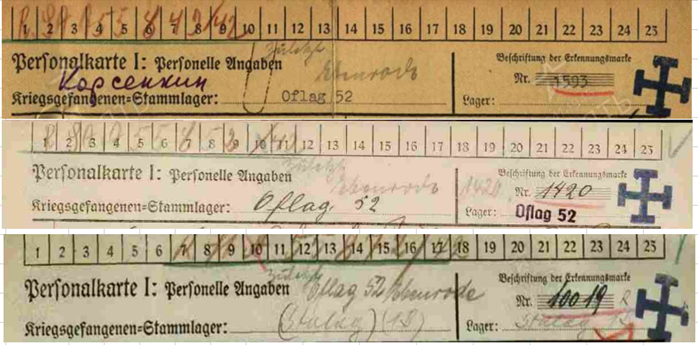 1 2 3 4 5 6 7 8 9 10 11 12 13 14 15 16 17 18 19 20 21 22 23 24 25
zuletzt
Personalkarte I: Personelle Angaben
Ebenrode
Beschriftung der Erkennungsmarke
Корсенкин
Nr. 1593
Kriegsgefangenen=Stammlager: Oflag 52
Lager:
1 2 3 4 5 6 7 8 9 10 11 12 13 14 15 16 17 18 19 20 21 22 23 24 25
zuletzt
Personalkarte I: Personelle Angaben
Ebenrode 1420
Beschriftung der Erkennungsmarke
Nr. 1420
Kriegsgefangenen=Stammlager: Oflag 52
Lager: Oflag 52
1 2 3 4 5 6 7 8 9 10 11 12 13 14 15 16 17 18 19 20 21 22 23 24 25
zuletzt
Personalkarte I: Personelle Angaben
Oflag 52 Ebenrode
Beschriftung der Erkennungsmarke
Nr. 10019
Kriegsgefangenen=Stammlager: (Stalag) (1D)
Lager: Stalag